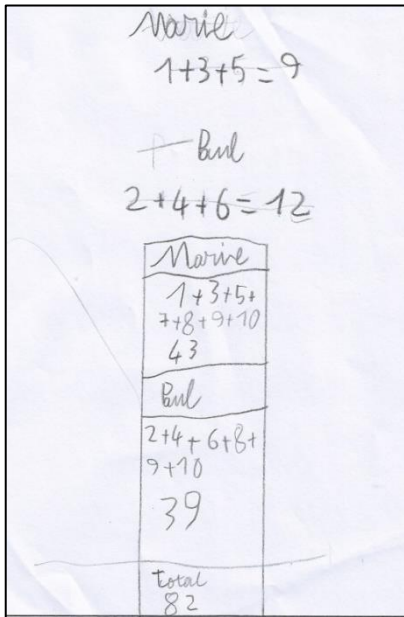 Marie
1+3+5=9
Paul
2+4+6=12
Marie
1+3+5+
7+8+9+10
43
Paul
2+4+6+8+
9+10
39
total
82